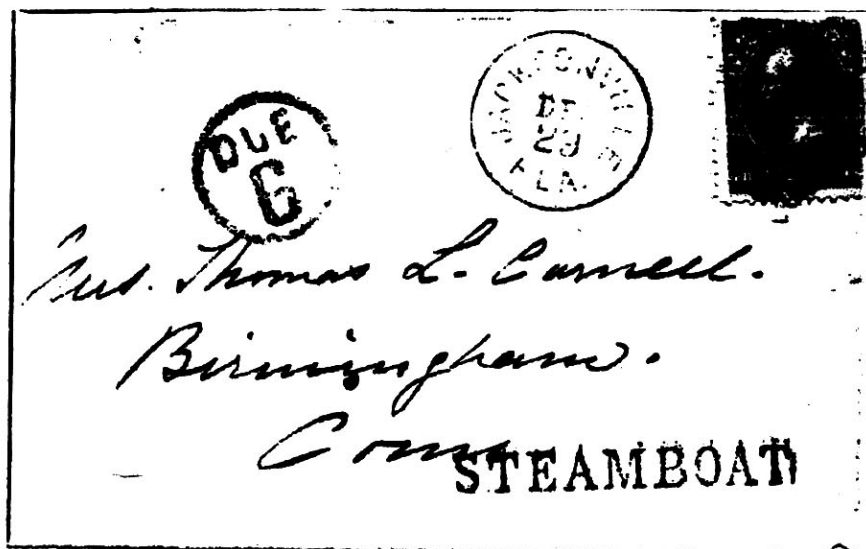 JACKSONVILLE
DE.
29
FLA.
DUE
6
Mrs. Thomas L. Carnell.
Birmingham.
Conn
STEAMBOAT